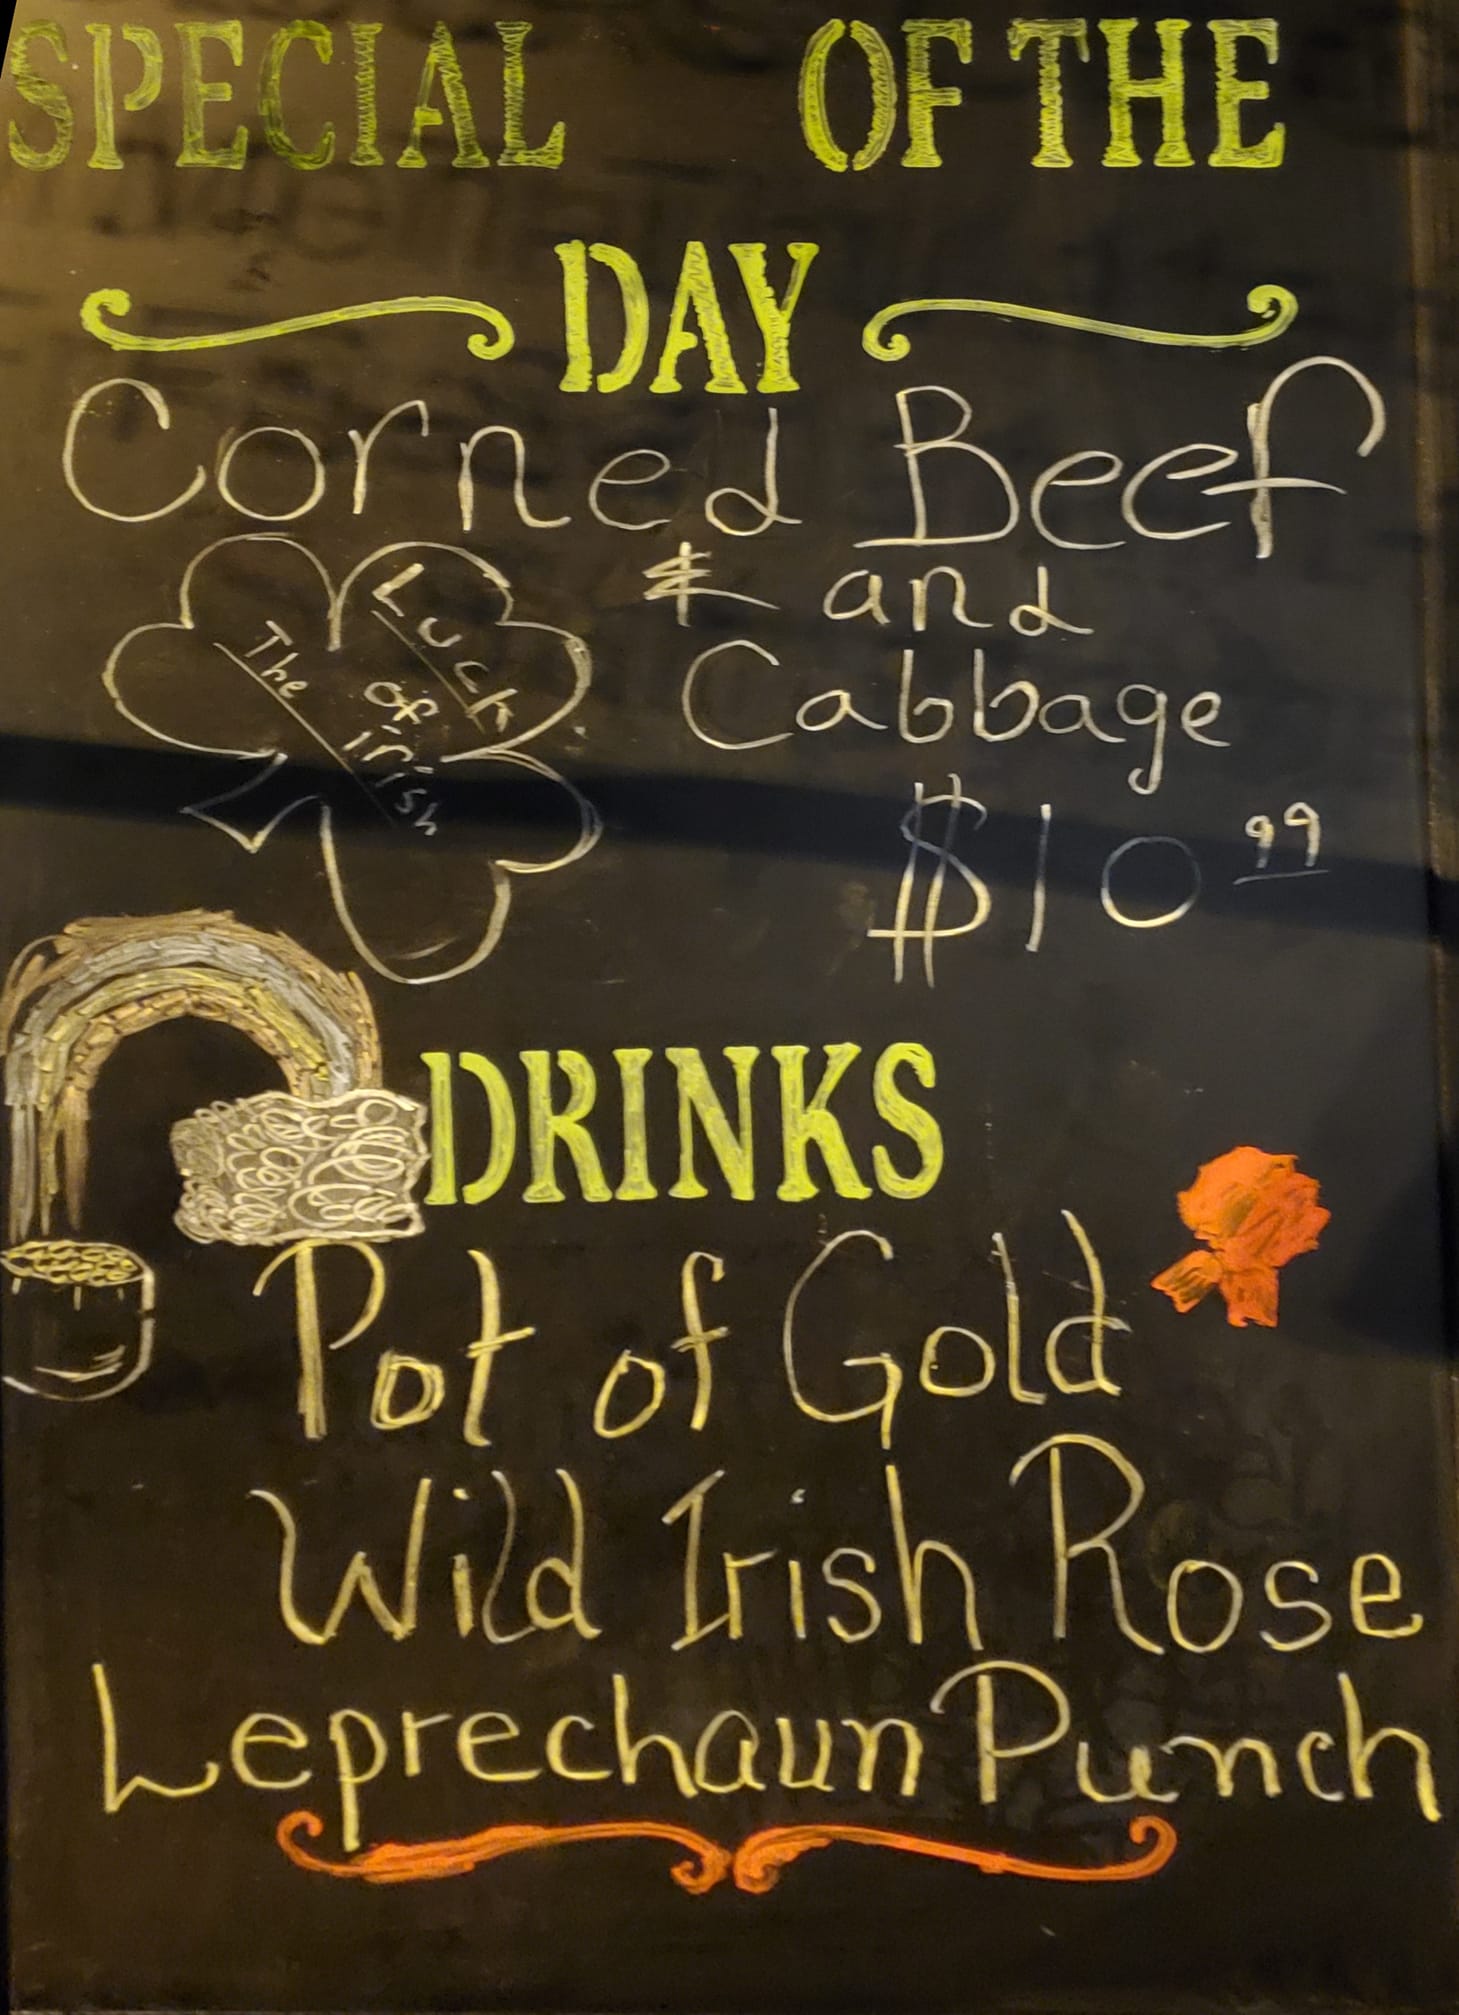 SPECIAL OF THE
DAY
Corned Beef
& and
Cabbage
$10 99
The Luck
of
irish
DRINKS
Pot of Gold
Wild Irish Rose
Leprechaun Punch